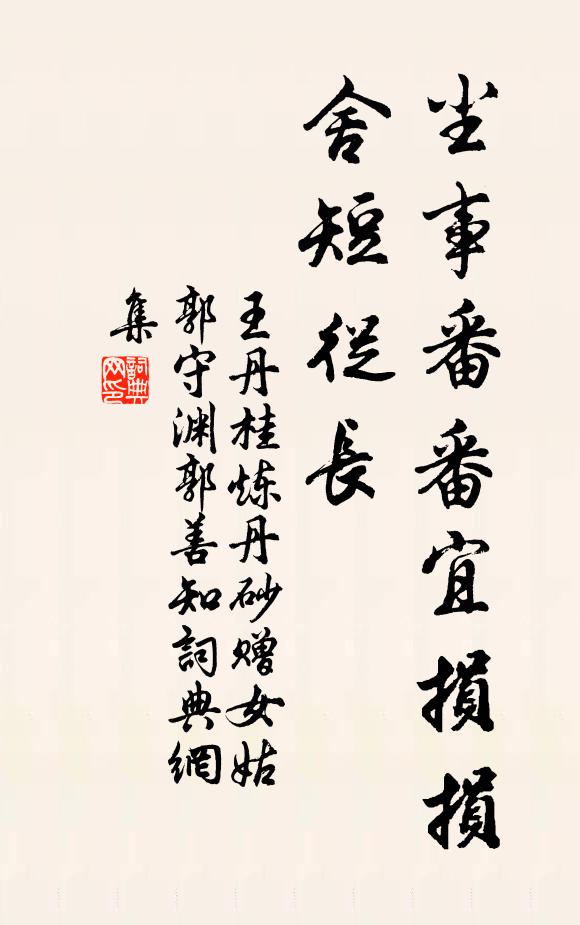 尘事番番宜損損
舍短從長
王丹桂炼丹砂赠女姑
郭守渊郭善知詞典網
集
詞典
网印